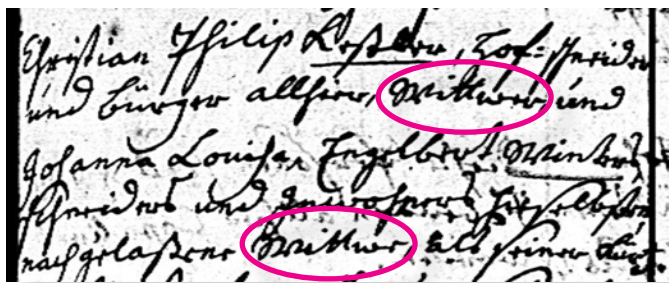 Christian Philip Keßler, Hof=schneider
und bürger allhier, Wittwer und
Johanna Louisa, Engelbert Winters,
schneiders und Inwohners hieselbsten
nachgelaßene Wittwe, als seiner